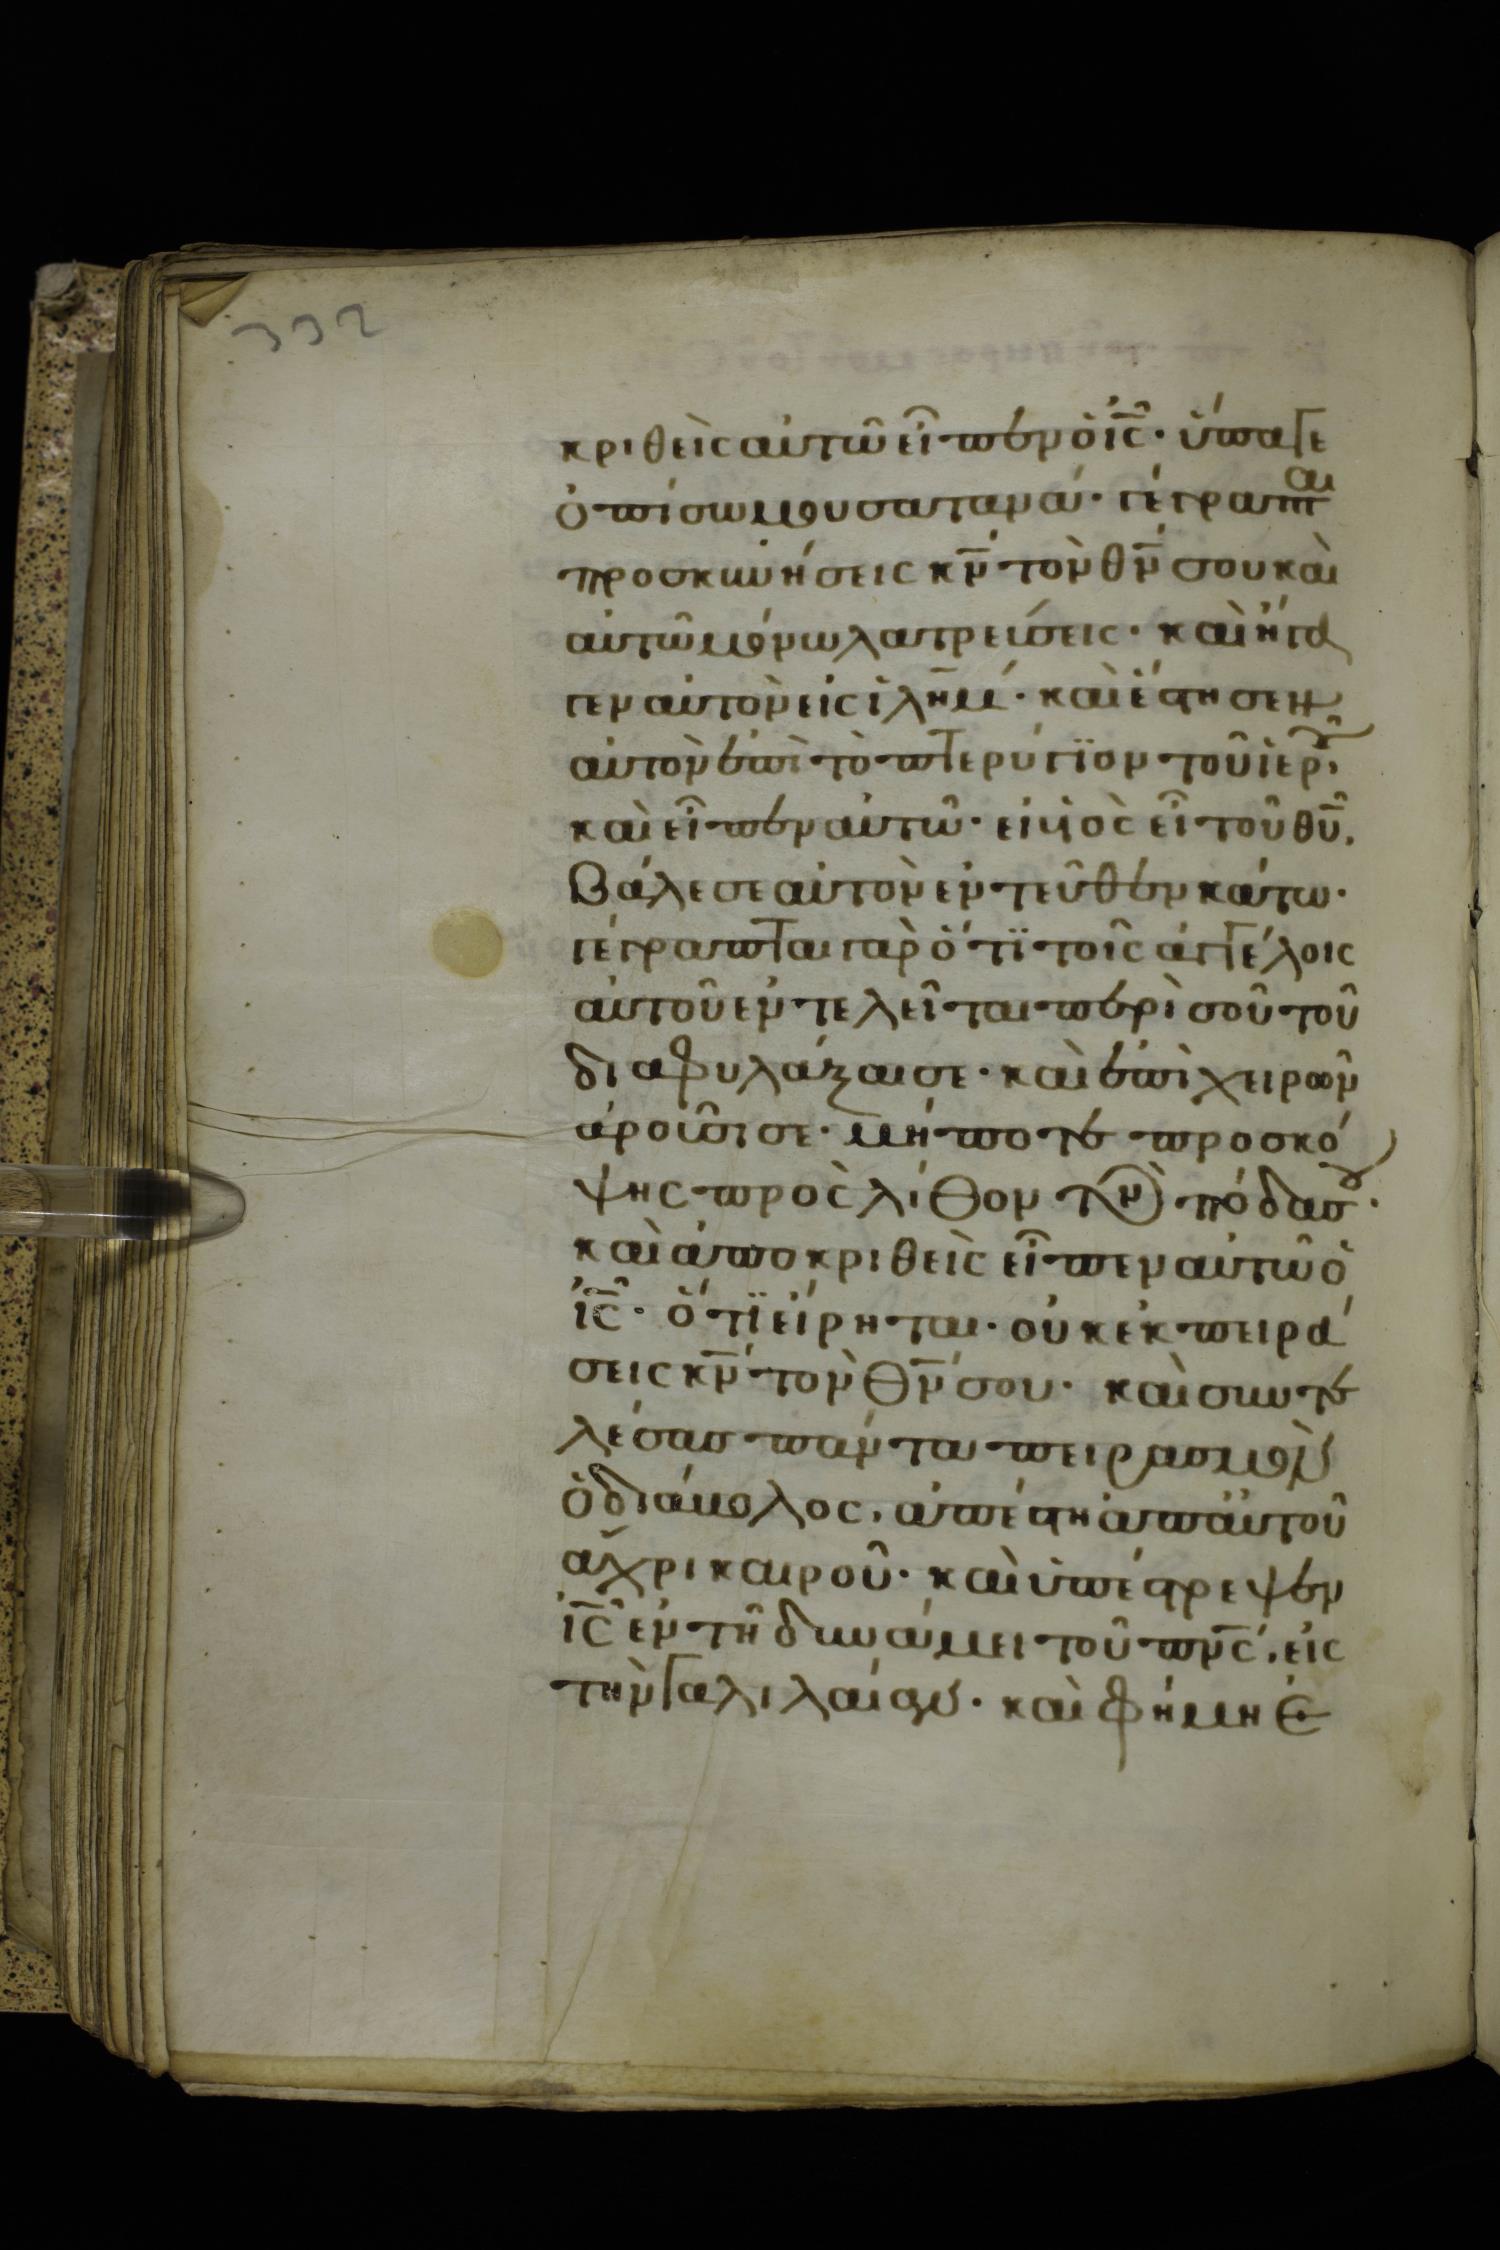 332
κριθεὶς αὐτῶ εἶπεν ὁ ἰς̅· ὕπαγε
ὀπίσω μου σατανά· γέγραπται
προσκυνήσεις κν̅ τὸν θν̅ σου καὶ
αὐτῶ μόνω λατρεύσεις· καὶ ἤγα
γεν αὐτὸν εἰς ἱλημ̅· καὶ ἔστησεν
αὐτὸν ἐπὶ τὸ πτερύγϊον τοῦ ἱεροῦ,
καὶ εἶπεν αὐτῶ· εἰ ὑὸς εἶ τοῦ θυ̅,
βάλε σεαυτὸν ἐντεῦθεν κάτω·
γέγραπται γὰρ ὅτϊ τοῖς ἀγγέλοις
αὐτοῦ ἐντελεῖται περὶ σοῦ τοῦ
διαφυλάξαι σε· καὶ ἐπὶ χειρῶν
ἀροῦσι σε· μήποτε προσκό
ψης πρὸς λίθον τὸν πόδα σου·
καὶ ἀποκριθεὶς εἶπεν αὐτῶ ὁ
ἰς̅· ὅτϊ εἴρηται· οὐκ ἐκπειρά
σεις κν̅ τὸν θν̅ σου· καὶ συντε
λέσας πάντα πειρασμὸν
ὁ διάβολος, ἀπέστη ἀπ' αὐτοῦ
ἄχρι καιροῦ· καὶ ὑπέστρεψεν
ἰς̅ ἐν τῆ δυνάμει τοῦ πνς̅, εἰς
τὴν γαλιλαίαν· καὶ φήμη ἐ